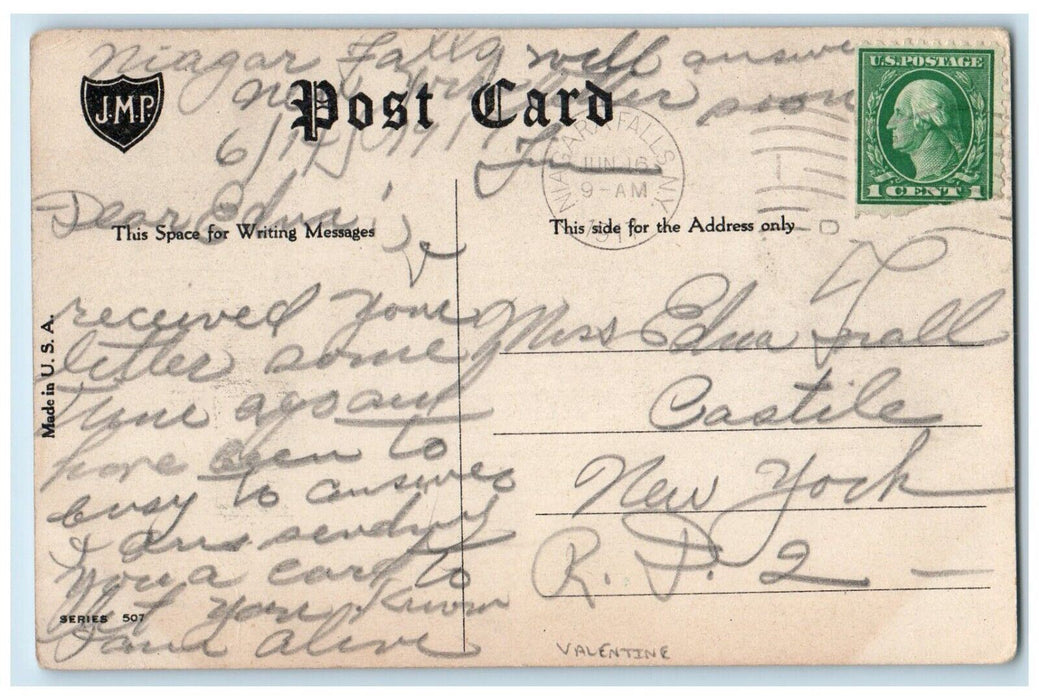 Niagar Falls will answer
New York letter soon
J.M.P.
Post Card
U.S. POSTAGE
1 CENT 1
6/14/1917
NIAGARA FALLS, N.Y.
JUN 16
9-AM
Dear Edna:
This Space for Writing Messages
This side for the Address only
received your
letter some
time ago and
have been to
busy to answer
I am sending
you a card to
let you know
I am alive
Miss Edna Trall
Castile
New York
R. D. 2
Made in U. S. A.
SERIES 507
VALENTINE